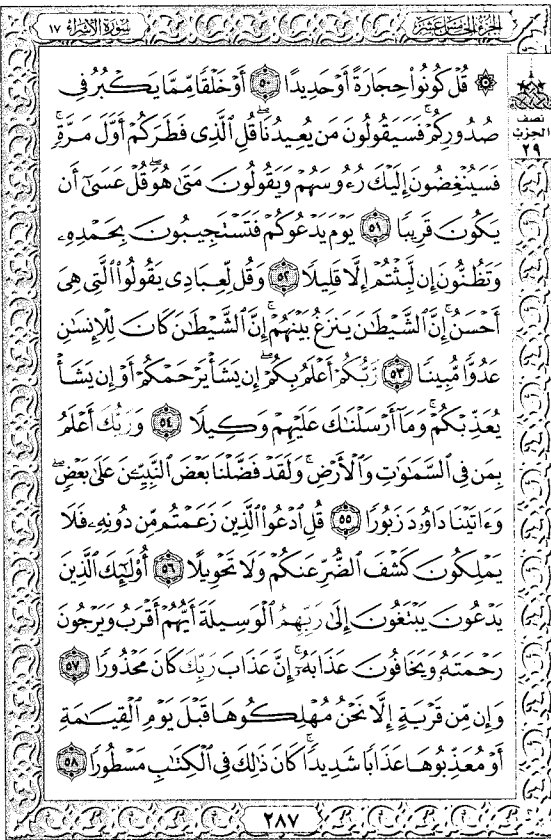 سُورَةُ الإِسْرَاءِ ١٧
الجُزْءُ الخَامِسَ عَشَرَ
۞ قُل كُونُوا۟ حِجَارَةً أَوْ حَدِيدًا ٥٠ أَوْ خَلْقًا مِّمَّا يَكْبُرُ فِى
صُدُورِكُمْ ۚ فَسَيَقُولُونَ مَن يُعِيدُنَا ۖ قُلِ ٱلَّذِى فَطَرَكُمْ أَوَّلَ مَرَّةٍ ۚ
فَسَيُنْغِضُونَ إِلَيْكَ رُءُوسَهُمْ وَيَقُولُونَ مَتَىٰ هُوَ ۖ قُلْ عَسَىٰٓ أَن
يَكُونَ قَرِيبًا ٥١ يَوْمَ يَدْعُوكُمْ فَتَسْتَجِيبُونَ بِحَمْدِهِۦ
وَتَظُنُّونَ إِن لَّبِثْتُمْ إِلَّا قَلِيلًا ٥٢ وَقُل لِّعِبَادِى يَقُولُوا۟ ٱلَّتِى هِىَ
أَحْسَنُ ۚ إِنَّ ٱلشَّيْطَٰنَ يَنزَغُ بَيْنَهُمْ ۚ إِنَّ ٱلشَّيْطَٰنَ كَانَ لِلْإِنسَٰنِ
عَدُوًّا مُّبِينًا ٥٣ رَّبُّكُمْ أَعْلَمُ بِكُمْ ۖ إِن يَشَأْ يَرْحَمْكُمْ أَوْ إِن يَشَأْ
يُعَذِّبْكُمْ ۚ وَمَآ أَرْسَلْنَٰكَ عَلَيْهِمْ وَكِيلًا ٥٤ وَرَبُّكَ أَعْلَمُ
بِمَن فِى ٱلسَّمَٰوَٰتِ وَٱلْأَرْضِ ۗ وَلَقَدْ فَضَّلْنَا بَعْضَ ٱلنَّبِيِّـۧنَ عَلَىٰ بَعْضٍ ۖ
وَءَاتَيْنَا دَاوُۥدَ زَبُورًا ٥٥ قُلِ ٱدْعُوا۟ ٱلَّذِينَ زَعَمْتُم مِّن دُونِهِۦ فَلَا
يَمْلِكُونَ كَشْفَ ٱلضُّرِّ عَنكُمْ وَلَا تَحْوِيلًا ٥٦ أُو۟لَٰٓئِكَ ٱلَّذِينَ
يَدْعُونَ يَبْتَغُونَ إِلَىٰ رَبِّهِمُ ٱلْوَسِيلَةَ أَيُّهُمْ أَقْرَبُ وَيَرْجُونَ
رَحْمَتَهُۥ وَيَخَافُونَ عَذَابَهُۥٓ ۚ إِنَّ عَذَابَ رَبِّكَ كَانَ مَحْذُورًا ٥٧
وَإِن مِّن قَرْيَةٍ إِلَّا نَحْنُ مُهْلِكُوهَا قَبْلَ يَوْمِ ٱلْقِيَٰمَةِ
أَوْ مُعَذِّبُوهَا عَذَابًا شَدِيدًا ۚ كَانَ ذَٰلِكَ فِى ٱلْكِتَٰبِ مَسْطُورًا ٥٨
نصف
الحزب
٢٩
٢٨٧